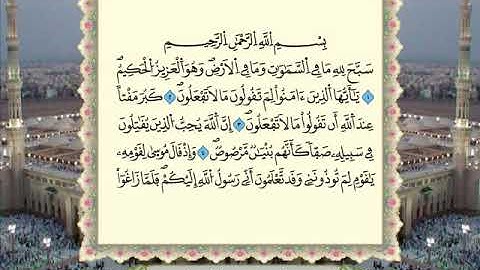 بِسْمِ اللَّهِ الرَّحْمَٰنِ الرَّحِيمِ
سَبَّحَ لِلَّهِ مَا فِي السَّمَٰوَٰتِ وَمَا فِي الْأَرْضِ ۖ وَهُوَ الْعَزِيزُ الْحَكِيمُ
١ يَٰٓأَيُّهَا الَّذِينَ ءَامَنُوا لِمَ تَقُولُونَ مَا لَا تَفْعَلُونَ ٢ كَبُرَ مَقْتًا
عِندَ اللَّهِ أَن تَقُولُوا مَا لَا تَفْعَلُونَ ٣ إِنَّ اللَّهَ يُحِبُّ الَّذِينَ يُقَٰتِلُونَ
فِي سَبِيلِهِ صَفًّا كَأَنَّهُم بُنْيَٰنٌ مَّرْصُوصٌ ٤ وَإِذْ قَالَ مُوسَىٰ لِقَوْمِهِ
يَٰقَوْمِ لِمَ تُؤْذُونَنِي وَقَد تَّعْلَمُونَ أَنِّي رَسُولُ اللَّهِ إِلَيْكُمْ ۖ فَلَمَّا زَاغُوا